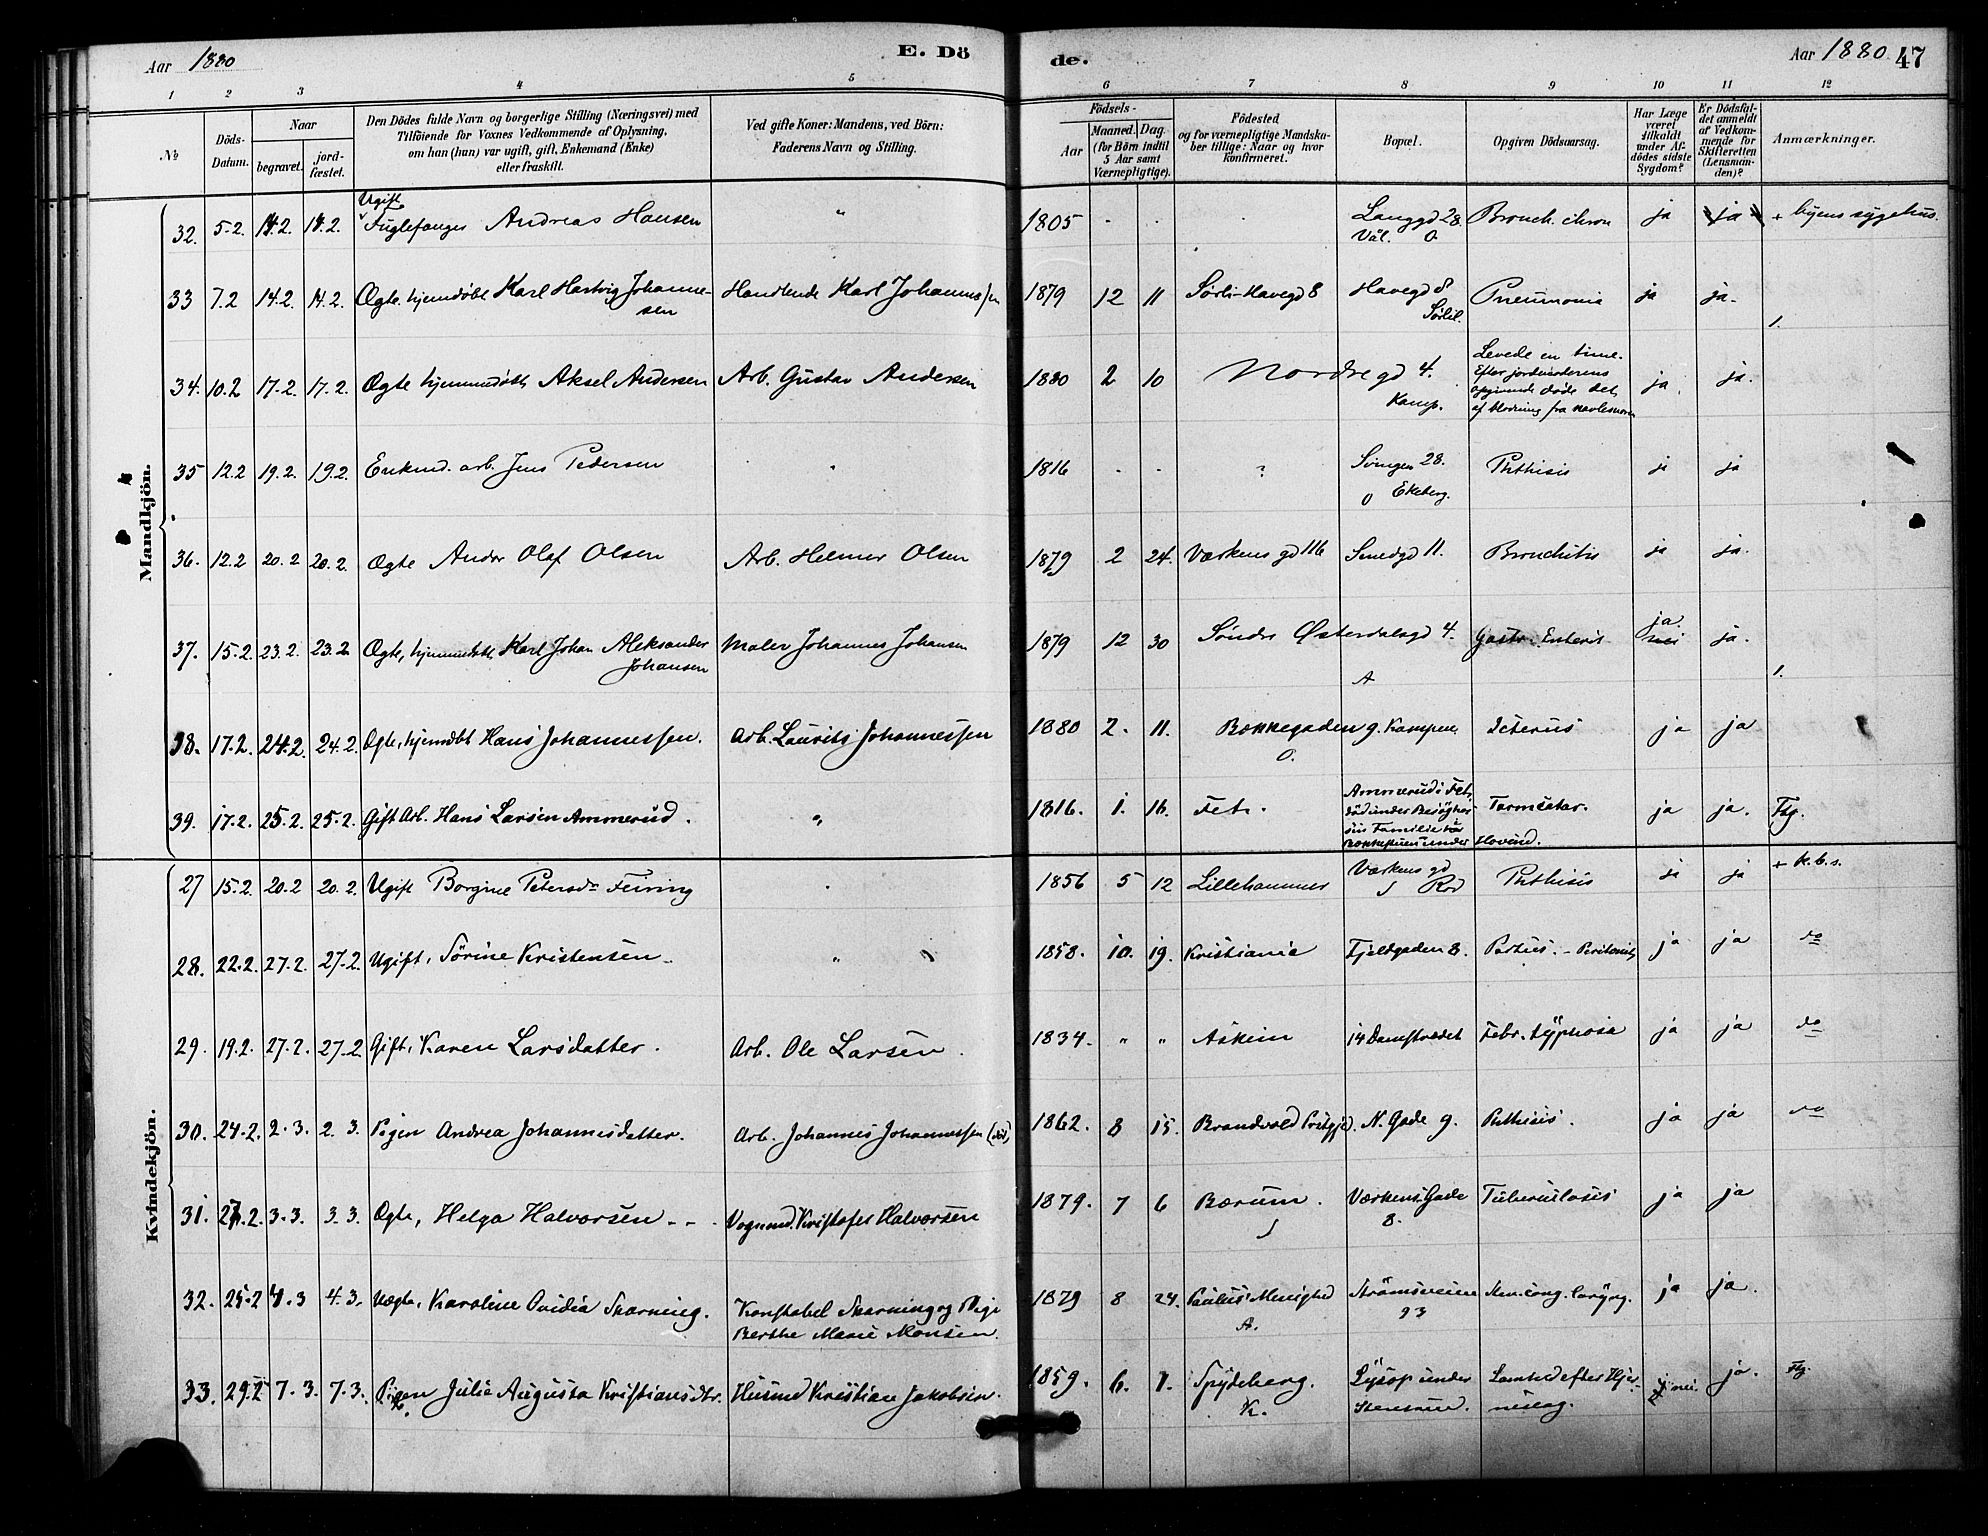 Aar 1880
E. Dö
de.
Aar 1880
47
1 2 3 4 5 6 7 8 9 10 11 12
№
Döds-
Datum.
Naar
begravet.
jord-
fæstet.
Den Dödes fulde Navn og borgerlige Stilling (Næringsvei) med
Tilföiende for Voxnes Vedkommende af Oplysning,
om han (hun) var ugift, gift, Enkemand (Enke)
eller fraskilt.
Ved gifte Koner: Mandens, ved Börn:
Faderens Navn og Stilling.
Födsels-
Aar
Maaned. Dag.
(for Börn indtil
5 Aar samt
Værnepligtige).
Födested
og for værnepligtige Mandska-
ber tillige: Naar og hvor
konfirmeret.
Bopæl.
Opgiven Dödsaarsag.
Har Læge
været
tilkaldt
under Af-
dödes sidste
Sygdom?
Er Dödsfal-
det anmeldt
af Vedkom-
mende for
Skifteretten
(Lensman-
den)?
Anmærkninger.
Mandkjön.
Ugift
32. 5-2. 14.2. 14.2. Fuglefanger Andreas Hansen " 1805 - - - Langgd 28. Bronch. chron ja ja + byens sygehus.
Vål. O
33 7.2 14.2. 14.2. Ægte hjemdøbt Karl Hartvig Johanne- Handlende Karl Johannessen 1879 12 11 Sørli-Havegd 8 Havegd 8 Pneumonia ja ja.
sen Sørlil. 1.
34. 10.2 17-2. 17-2. Ægte hjemmedøbt Aksel Andersen Arb. Gustav Andersen 1880 2 10 Nordre gd 4. Levede en time. ja ja.
Kamp. Efter jordmoderens
opgivende døde det
af blødning fra navlesnoren
35 12.2 19.2. 19.2. Enkmd. arb. Jens Pedersen " 1816 - - ? Svingen 28. Phthisis ja ja
O Ekeberg.
36. 12.2 20.2 20.2. Ægte Anders Olaf Olsen Arb. Helmer Olsen 1879 2 24. Værkens gd 11b Smedgd 11. Bronchitis ja ja.
37. 15-2. 23.2. 23.2 Ægte, hjemmedøbt Karl Johan Aleksander Maler Johannes Johansen 1879 12 30 Søndre Østerdalsgd 4. Gastr. Enterit ja nei ja.
Johansen A 1.
38. 17-2. 24.2. 24.2. Ægte, hjemdøbt Hans Johannessen. Arb. Laurits Johannessen 1880 2. 11. Bøkkegaden 9. Kampen Icterus ja ja
O.
39. 17-2. 25.2. 25-2. Gift Arb. Hans Larsen Ammerud. " 1816. 1. 16. Fet. Ammerud i Fet, Tarmcatar. ja ja. Flg.
død under Besøg hos
sin Familie
under Hovind.
Kvindekjön.
27 15-2. 20.2 20.2. Ugift Borgine Petersdr Feiring 1856 5 12 Lillehammer Værkens gd Phthisis ja ja + k.b.s.
J
28. 22.2. 27-2. 27-2. Ugift, Sörine Kristensen " 1858. 10. 19. Kristiania Fjeldgaden 8. Partus. - Peritonit. ja ja do
29. 19.2. 27-2. 27-2 Gift, Karen Larsdatter. Arb. Ole Larsen. 1834. " " Askim 14 Damstrædet Febr. typhosa ja ja do
30. 24-2. 2.3. 2.3. Pigen Andrea Johannesdatter. Arb. Johannes Johannessen (död) 1862. 8 15. Brandvold Prstgjd. N. Gade 9. Phthisis. ja ja do
31. 27.2. 3-3. 3.3. Ægte, Helga Halvorsen Vognmd. Kristofer Halvorsen 1879. 7 6 Bærum. Værkens Gade Tuberculosis ja ja
J 8.
32. 25-2 4.3 4.3. Uægte, Karoline Ovidia Skarning. Konstabel Skarning og Pige 1879 8 24. Paulus' Menighed Strömsveien Sten. cong. laryng. ja ja.
Berthe Marie Monsen. A. 93
33. 29.2 7.3. 7.3. Pigen Julie Augusta Kristiansdtr. Husmd Kristian Jakobsen. 1859. 6. 7. Spydeberg. Lysop under Lamhed efter Hjer- nei ja. Flg
K. Stensrud. neslag.